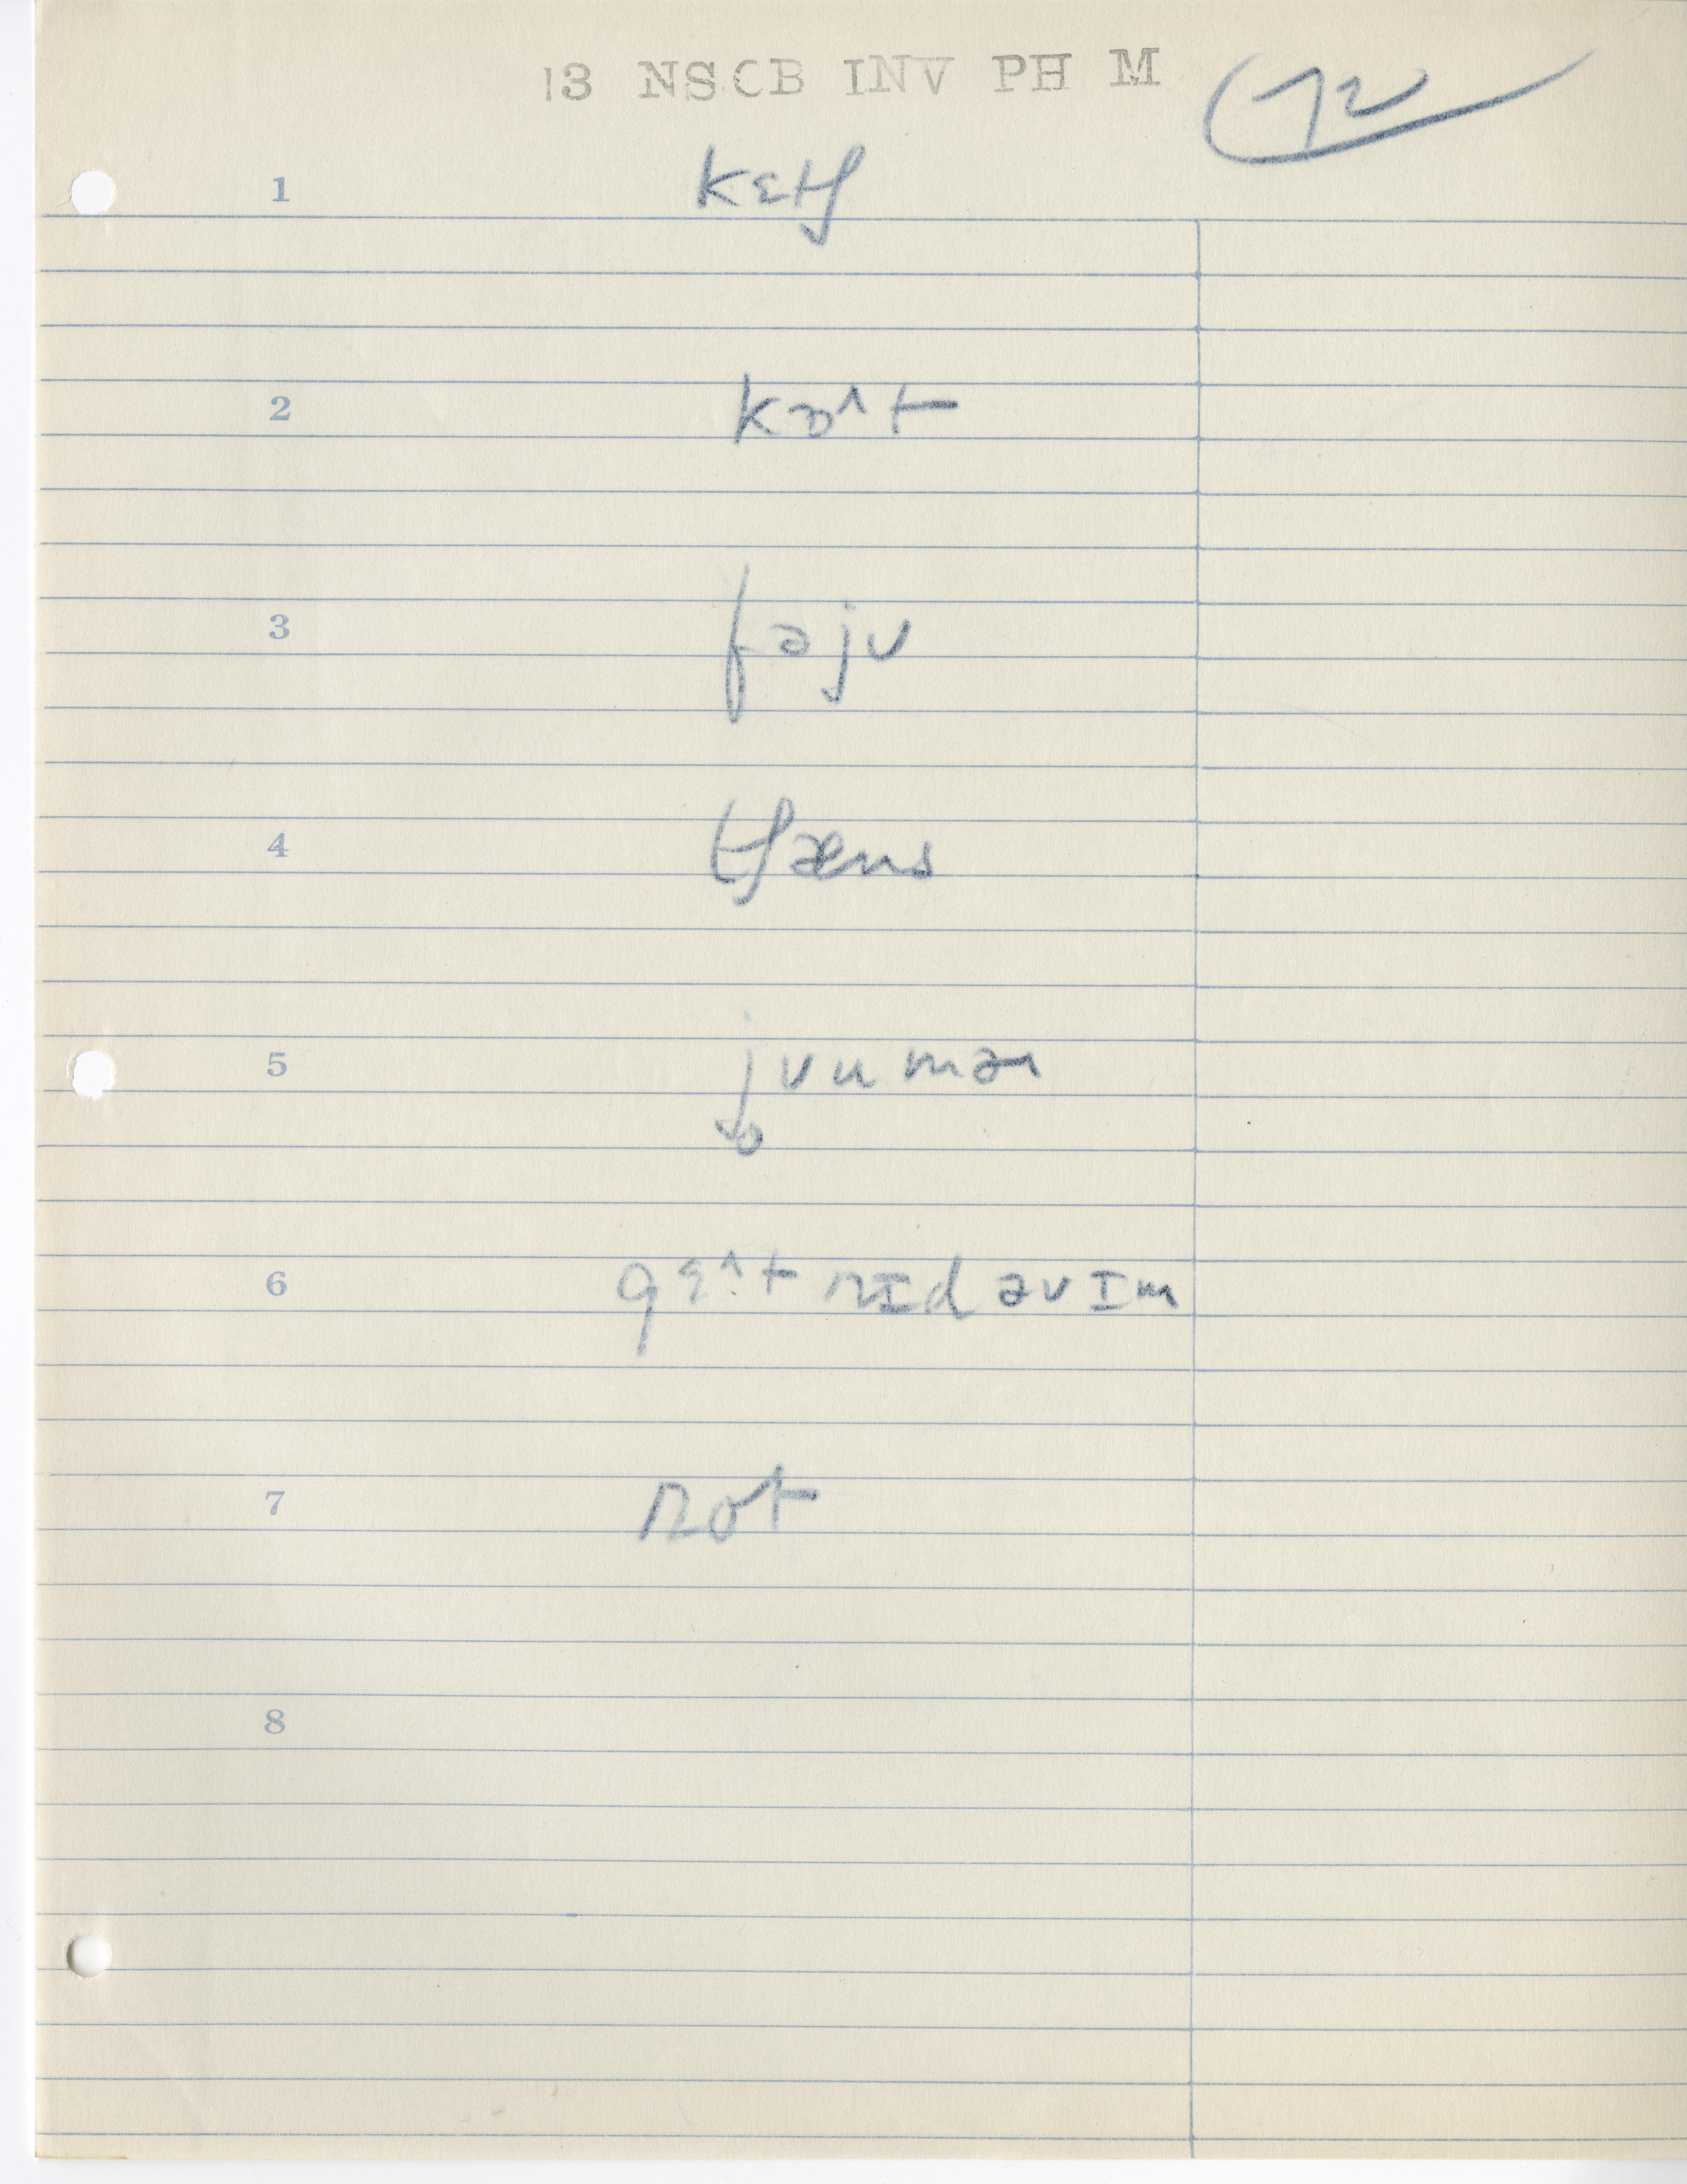 13 NSCB INV PH M 72
1 kɛtʃ
2 kɒ^t
3 fəju
4 tʃæns
5 jvumən
6 gɛ^t rɪd əv ɪm
7 rot
8